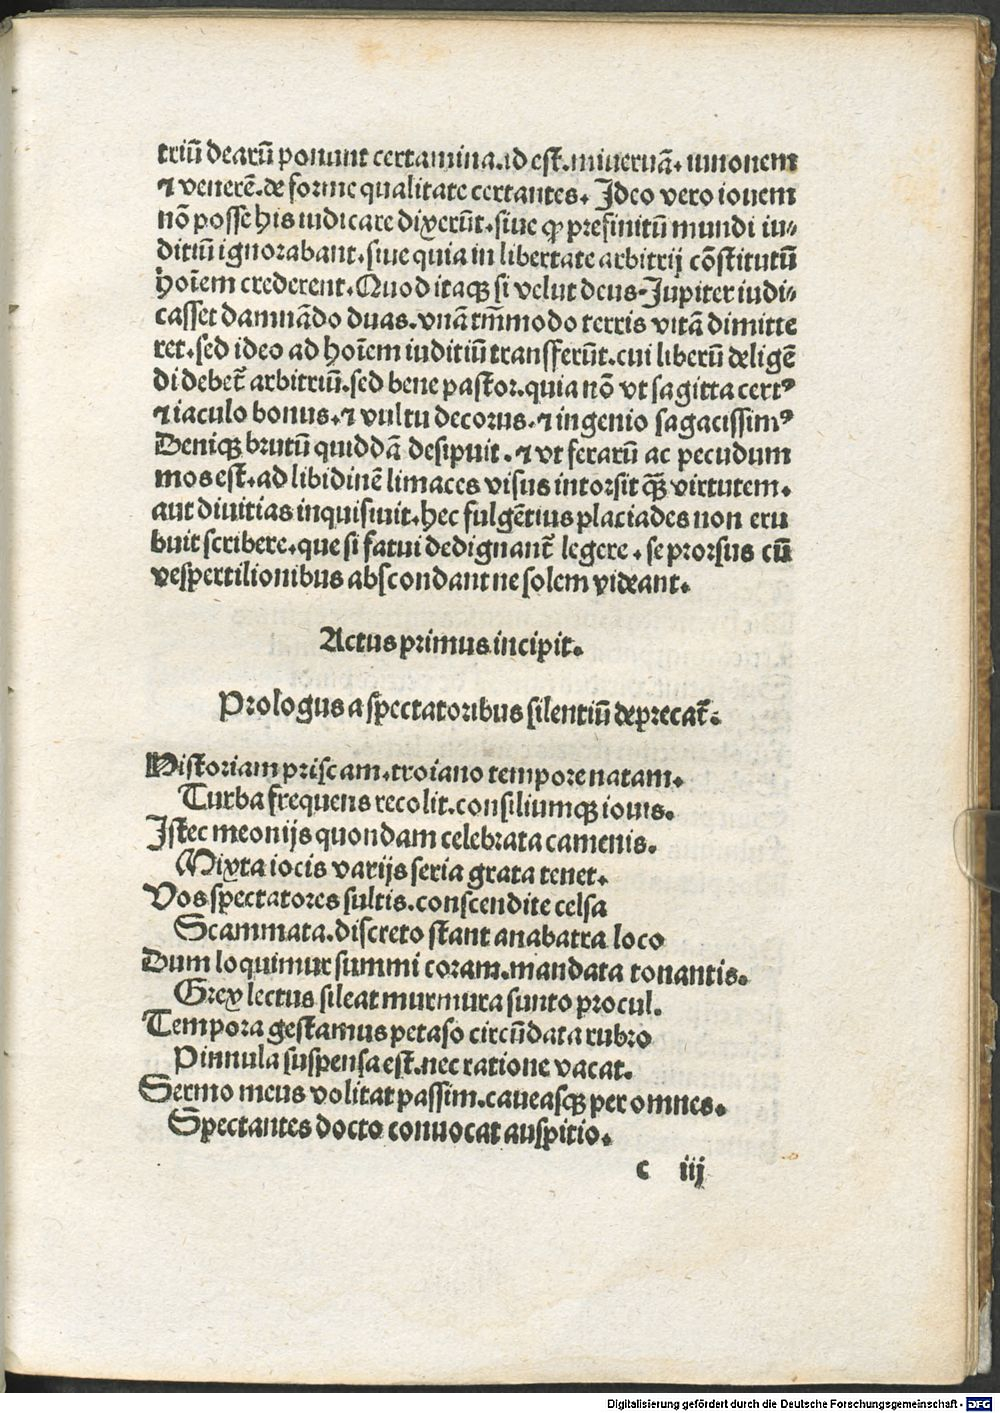 triū dearū ponunt certamina.id est.minervā. iunonem
⁊ venerē.de forme qualitate certantes. Ideo vero iouem
nō posse his iudicare dixerūt.siue ꝙ prefinitū mundi iu⸗
ditiū ignorabant.siue quia in libertate arbitrij cōstitutū
hoīem crederent.Quod itaqꝫ si velut deus Jupiter iudi⸗
casset damnādo duas.vnā tm̄modo terris vitā dimitte
ret.sed ideo ad hoīem iuditiū transfferūt.cui liberū deligē
di debet̄ arbitriū.sed bene pastor.quia nō vt sagitta certꝰ
⁊ iaculo bonus.⁊ vultu decorus.⁊ ingenio sagacissimꝰ
Deniqꝫ brutū quiddā desipuit.⁊ vt ferarū ac pecudum
mos est.ad libidinē limaces visus intorsit qꝫ̄ virtutem.
aut diuitias inquisiuit.hec fulgētius placiades non eru
buit scribere.que si fatui dedignant̄ legere.se prorsus cū
vespertilionibus abscondant ne solem videant.
Actus primus incipit.
Prologus a spectatoribus silentiū deprecat̄.
Historiam priscam.troiano tempore natam.
Turba frequens recolit.consiliumqꝫ iouis.
Istec meonijs quondam celebrata camenis.
Mixta iocis varijs seria grata tenet.
Vos spectatores sultis.conscendite celsa
Scammata.discreto stant anabatra loco
Dum loquimur summi coram.mandata tonantis.
Grex lectus sileat murmura sunto procul.
Tempora gestamus petaso circūdata rubro
Pinnula suspensa est.nec ratione vacat.
Sermo meus volitat passim.caueasqꝫ per omnes.
Spectantes docto conuocat auspitio.
c iij
Digitalisierung gefördert durch die Deutsche Forschungsgemeinschaft - DFG